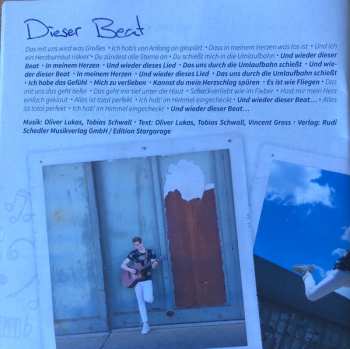 Dieser Beat
Das mit uns wird was Großes • Ich hab's von Anfang an gespürt • Dass in meinem Herzen was los ist • Und ich
ein Herzbeatnaut riskier' • Du zündest alle Sterne an • Du schießt mich in die Umlaufbahn • Und wieder dieser
Beat • In meinem Herzen • Und wieder dieses Lied • Das uns durch die Umlaufbahn schießt • Und wie-
der dieser Beat • In meinem Herzen • Und wieder dieses Lied • Das uns durch die Umlaufbahn schießt
• Ich habe das Gefühl • Mich zu verlieben • Kannst du mein Herzschlag spüren • Es ist wie Fliegen • Das
mit uns das geht tiefer • Das geht mir tief unter die Haut • Schockverliebt wie im Fieber • Hast mir mein Herz
einfach geklaut • Alles ist total perfekt • Ich hab' im Himmel eingecheckt • Und wieder dieser Beat… • Alles
ist total perfekt • Ich hab' im Himmel eingecheckt • Und wieder dieser Beat…
Musik: Oliver Lukas, Tobias Schwall • Text: Oliver Lukas, Tobias Schwall, Vincent Gross • Verlag: Rudi
Schedler Musikverlag GmbH / Edition Stargarage